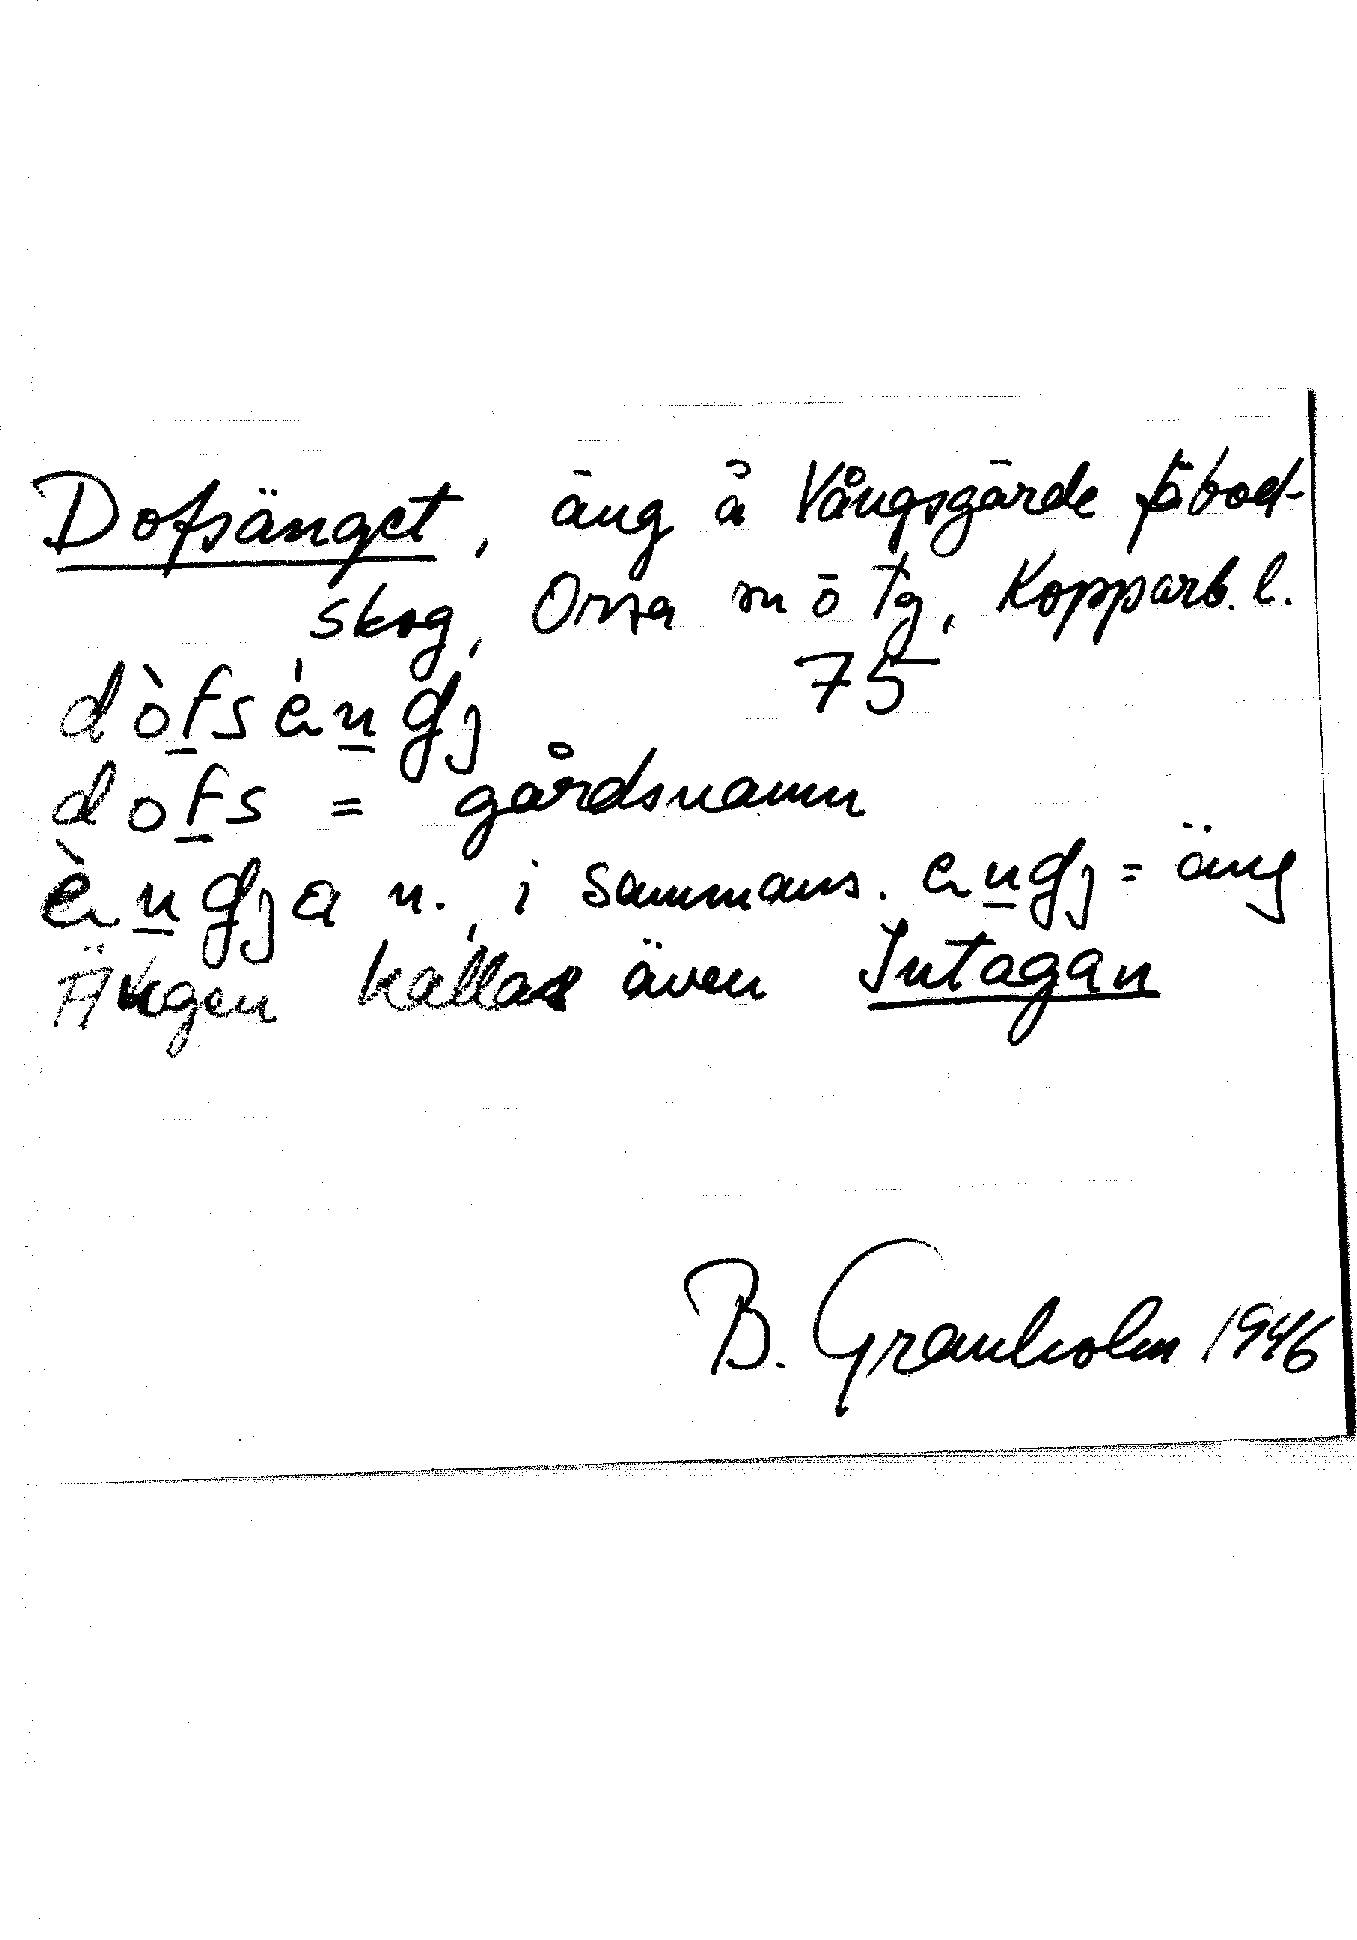 Dofsänget, äng å Vångsgärde fäbod-
skog, Orsa m ö tg, Kopparb. l.
75
dòfsèngj
dofs = gårdsnamn
èngja n., i sammans. engj = äng
Ängen kallas även Intagan
B. Granholm 1946